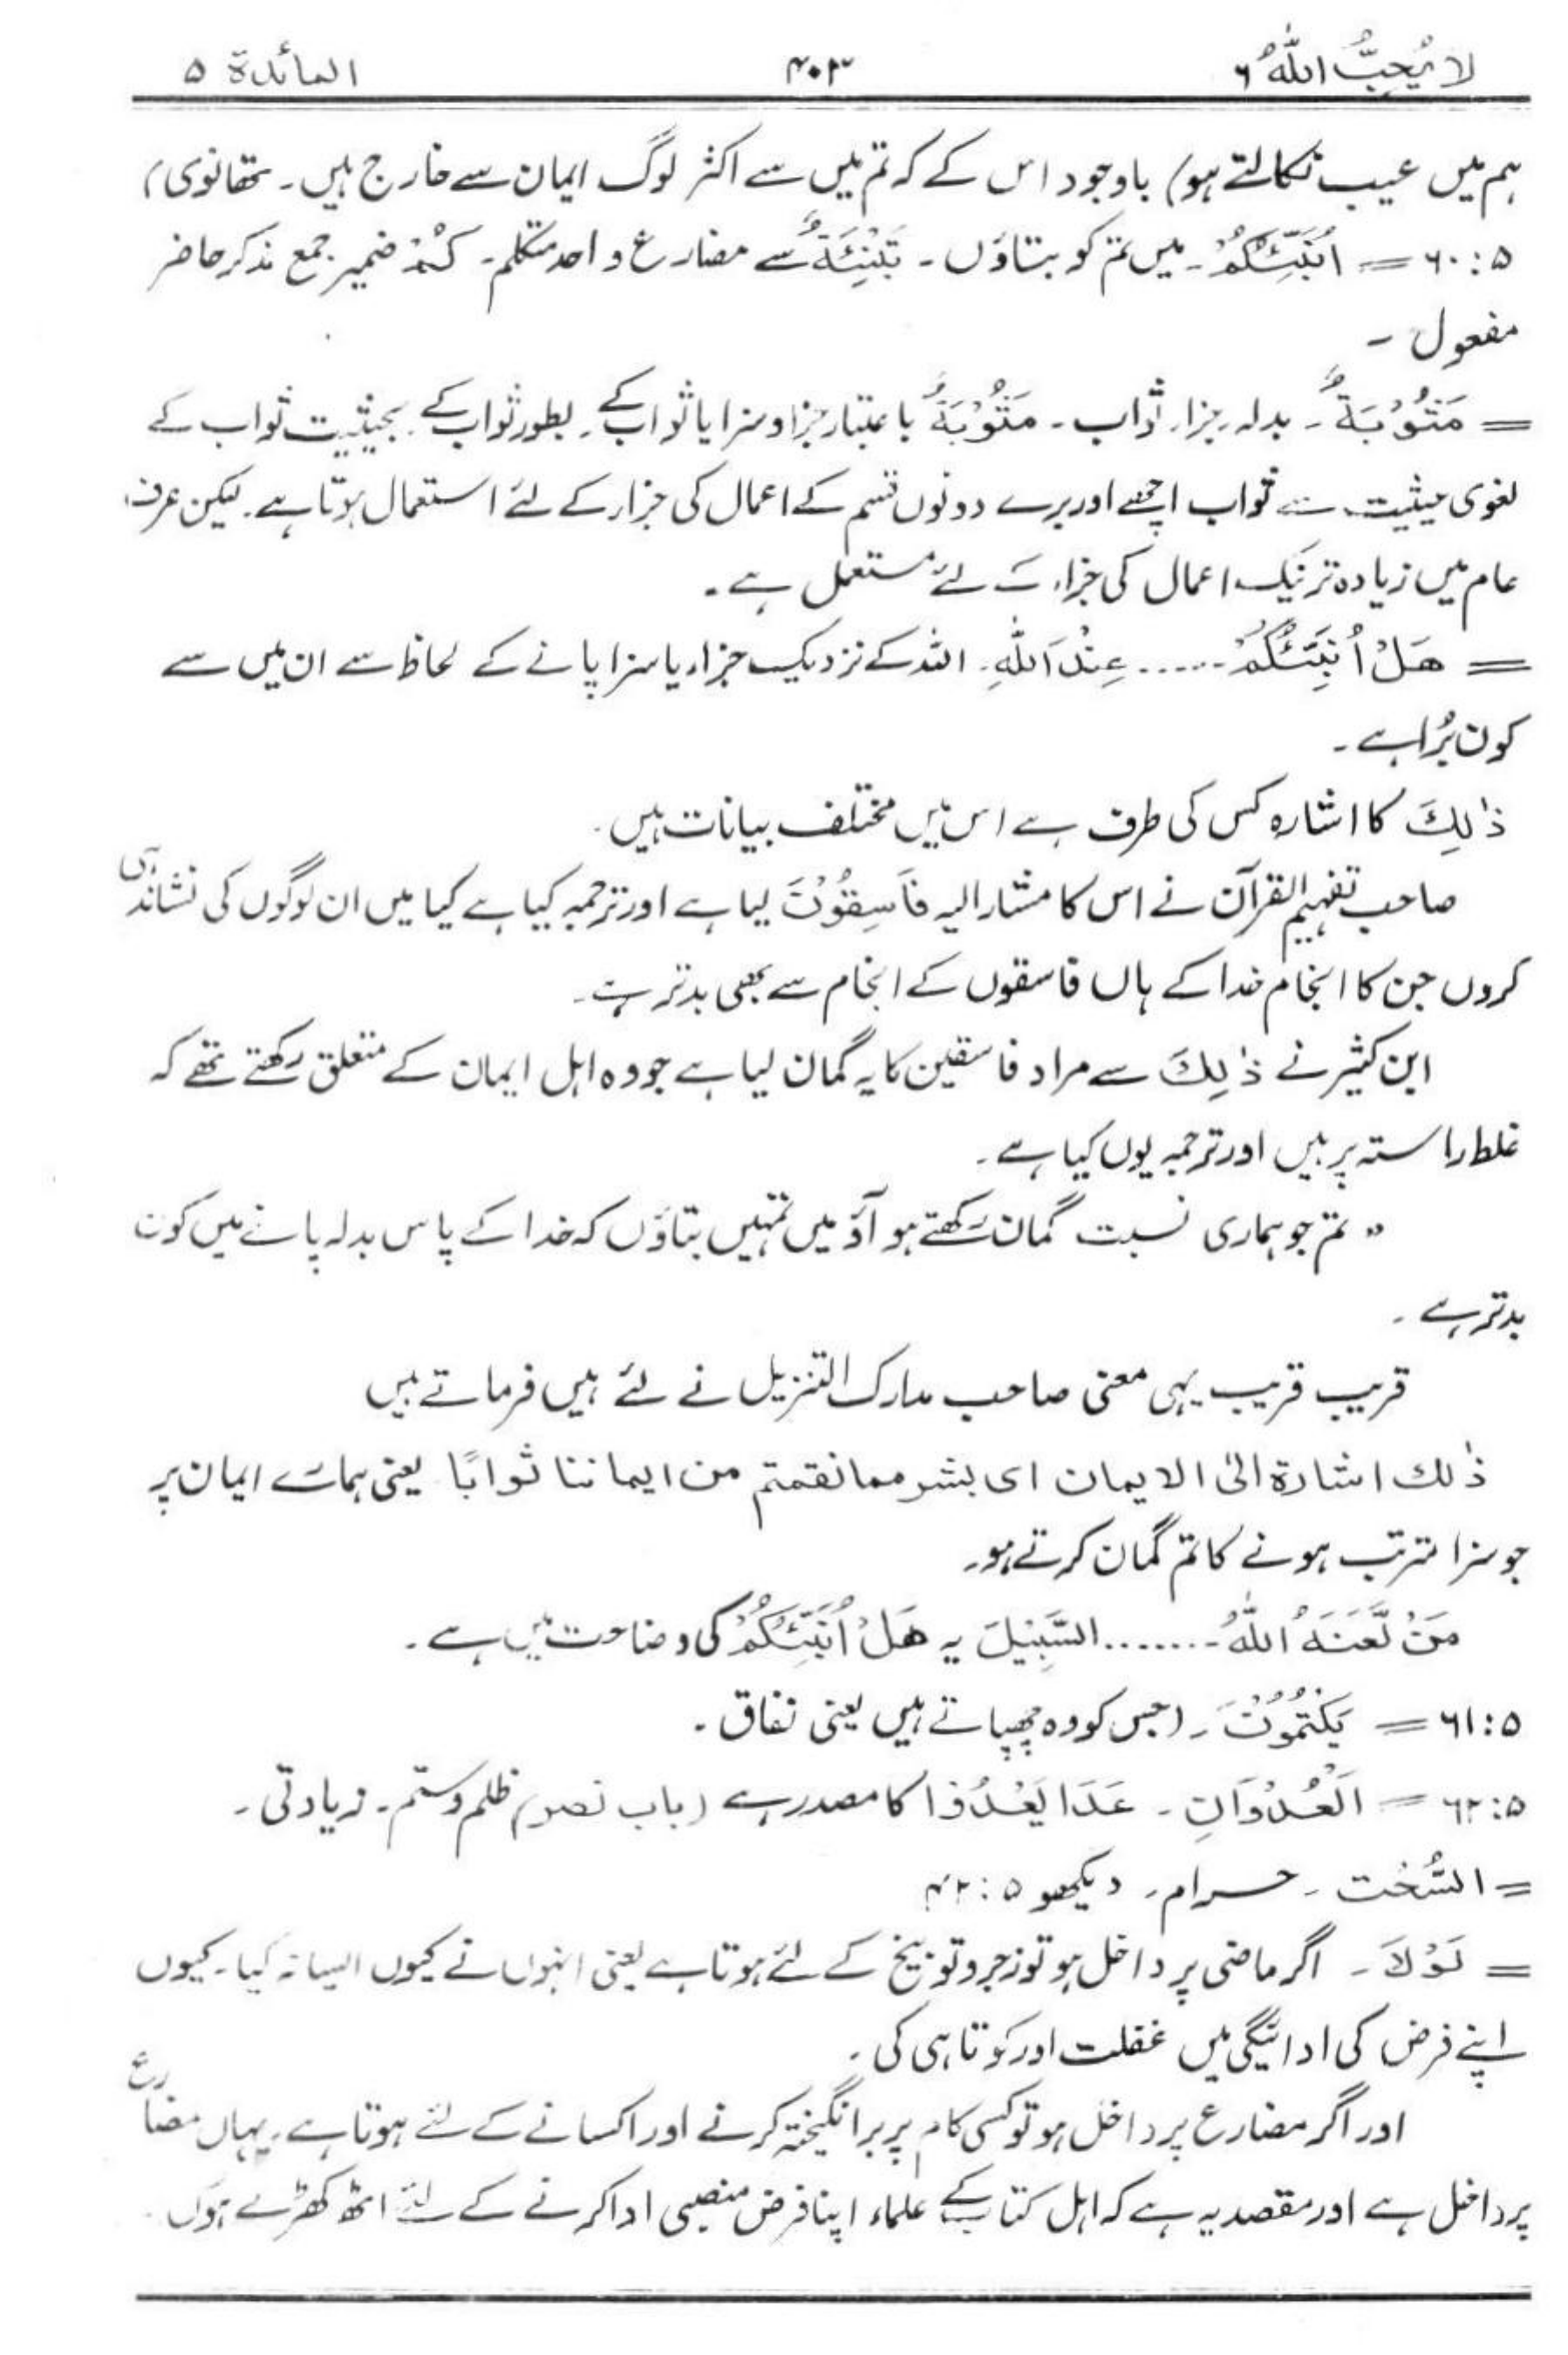 لا یُحِبُّ اللّٰهُ ۶ ۴۰۳ المائدة ۵
ہم میں عیب نکالتے ہو) باوجود اس کے کہ تم میں سے اکثر لوگ ایمان سے خارج ہیں۔ تھانوی)
۵:۶۰ = اُنَبِّئُكُمْ۔ میں تم کو بتاؤں۔ تَنْبِئَةٌ سے مضارع واحد متکلم۔ كُمْ ضمیر جمع مذکر حاضر
مفعول۔
= مَثُوْبَةٌ۔ بدلہ۔ جزار۔ ثواب۔ مَثُوْبَةٌ باعتبار جزا و سزا یا ثواب کے۔ بطور ثواب کے۔ بحیثیت ثواب کے
لغوی حیثیت سے ثواب اچھے اور برے دونوں قسم کے اعمال کی جزار کے لئے استعمال ہوتا ہے۔ لیکن عرف
عام میں زیادہ تر نیک اعمال کی جزاء کے لئے مستعمل ہے۔
= هَلْ اُنَبِّئُكُمْ ...... عِنْدَ اللّٰهِ۔ اللہ کے نزدیک جزاء یا سزا پانے کے لحاظ سے ان میں سے
کون بُرا ہے۔
ذٰلِكَ کا اشارہ کس کی طرف ہے اس میں مختلف بیانات ہیں۔
صاحب تفہیم القرآن نے اس کا مشار الیہ فَاسِقُوْنَ لیا ہے اور ترجمہ کیا ہے کیا میں ان لوگوں کی نشاندہی
کروں جن کا انجام خدا کے ہاں فاسقوں کے انجام سے بھی بدتر ہے۔
ابن کثیر نے ذٰلِكَ سے مراد فاسقین کا یہ گمان لیا ہے جو وہ اہل ایمان کے متعلق رکھتے تھے کہ
غلط راستہ پر ہیں اور ترجمہ یوں کیا ہے۔
" تم جو ہماری نسبت گمان رکھتے ہو آؤ میں تمہیں بتاؤں کہ خدا کے پاس بدلہ پانے میں کون
بدتر ہے۔
قریب قریب یہی معنی صاحب مدارک التنزیل نے لئے ہیں فرماتے ہیں
ذٰلك اشارة الیٰ الایمان ای بشر مما نقمتم من ایماننا ثوابًا یعنی ہمارے ایمان پر
جو سزا مترتب ہونے کا تم گمان کرتے ہو۔
مَنْ لَّعَنَهُ اللّٰهُ ........ السَّبِیْلَ یہ هَلْ اُنَبِّئُكُمْ کی وضاحت میں ہے۔
۵:۶۱ = یَكْتُمُوْنَ۔ (جس کو وہ چھپاتے ہیں یعنی نفاق۔
۵:۶۲ = اَلْعُدْوَانِ۔ عَدَا یَعْدُوْا کا مصدر ہے (باب نصر) ظلم و ستم۔ زیادتی۔
= السُّحْت۔ حرام۔ دیکھو ۵:۴۲
= لَوْلَا۔ اگر ماضی پر داخل ہو تو زجر و توبیخ کے لئے ہوتا ہے یعنی انہوں نے کیوں ایسا نہ کیا۔ کیوں
اپنے فرض کی ادائیگی میں غفلت اور کوتاہی کی۔
اور اگر مضارع پر داخل ہو تو کسی کام پر برانگیختہ کرنے اور اکسانے کے لئے ہوتا ہے۔ یہاں مضارع
پر داخل ہے اور مقصد یہ ہے کہ اہل کتاب کے علماء اپنا فرض منصبی ادا کرنے کے لئے اٹھ کھڑے ہوں۔